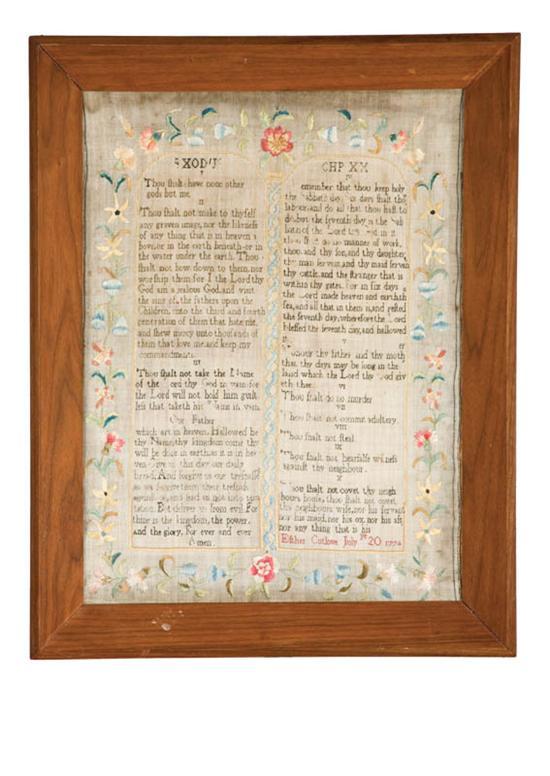 EXOD'S
I
Thou shalt have none other
gods but me
II
Thou shalt not make to thyself
any graven image, nor the likeness
of any thing that is in heaven a
bove, or in the earth beneath or in
the water under the earth. Thou
shalt not bow down to them, nor
worship them for I the Lord thy
God am a jealous God, and visit
the sins of the fathers upon the
Children, unto the third and fourth
generation of them that hate me,
and shew mercy unto thousands of
them that love me, and keep my
commandments.
III
Thou shalt not take the Name
of the Lord thy God in vain for
the Lord will not hold him guilt
less that taketh his Name in vain
Our Father
which art in heaven, Hallowed be
thy Name, thy kingdom come thy
will be done in earth as it is in he
ven give us this day our daily
bread, And forgive us our trespass
as we forgive them their trespass
against us, and lead us not into tem
tation. But deliver us from evil. For
thine is the kingdom, the power,
and the glory, For ever and ever
Amen
CHP XX
IV
emember that thou keep holy
the Sabbath day six days shalt tho
labour, and do all that thou hast to
do, but the seventh day is the Sab
bath of the Lord thy God in it
thou shalt do no manner of work,
thou, and thy son, and thy daughter,
thy man servant, and thy maid servan
thy cattle, and the stranger that is
within thy gates. For in six days
the Lord made heaven and earth th
sea, and all that in them is, and rested
the seventh day, wherefore the Lord
blessed the seventh day, and hallowed
it
V
Honour thy father and thy moth er
that thy days may be long in the
land which the Lord thy God giv
eth thee
VI
Thou shalt do no murder
VII
Thou shalt not commit adultery
VIII
Thou shalt not steal
IX
Thou shalt not bear false witness
against thy neighbour.
X
Thou shalt not covet thy neigh
bours house, thou shalt not covet
thy neighbours wife, nor his servant
nor his maid, nor his ox, nor his ass
nor any thing that is his
Esther Cutlove July ye 20